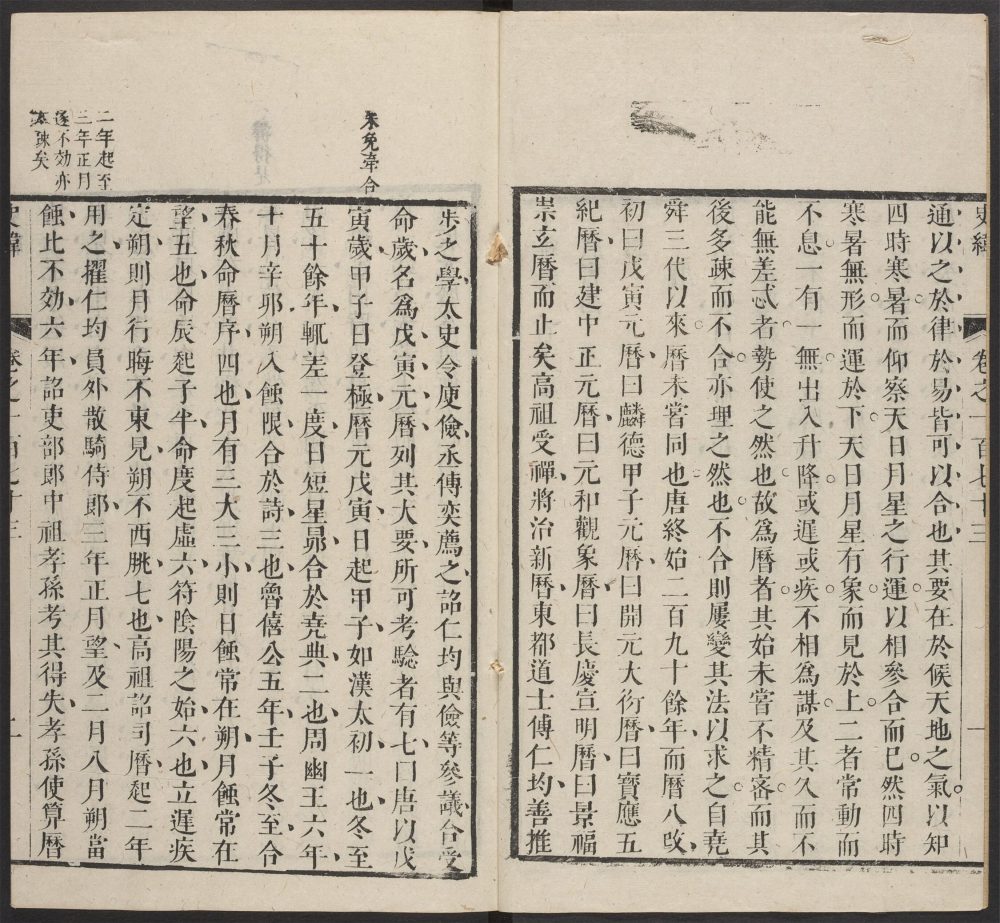 史緯 卷之一百七十三 一
通以之於律於易皆可以合也其要在於候天地之氣以知
四時寒暑而仰察天日月星之行運以相參合而已然四時
寒暑無形而運於下天日月星有象而見於上二者常動而
不息一有一無出入升降或遲或疾不相為謀及其久而不
能無差忒者勢使之然也故為曆者其始未嘗不精密而其
後多疎而不合亦理之然也不合則屢變其法以求之自堯
舜三代以來曆未嘗同也唐終始二百九十餘年而曆八改
初曰戊寅元曆曰麟德甲子元曆曰開元大衍曆曰寶應五
紀曆曰建中正元曆曰元和觀象曆曰長慶宣明曆曰景福
崇玄曆而止矣高祖受禪將治新曆東都道士傅仁均善推
步之學太史令庾儉丞傅奕薦之詔仁均與儉等參議合受
命歲名為戊寅元曆列其大要所可考驗者有七曰唐以戊
寅歲甲子日登極曆元戊寅日起甲子如漢太初一也冬至
五十餘年輒差一度日短星昴合於堯典二也周幽王六年
十月辛卯朔入蝕限合於詩三也魯僖公五年壬子冬至合
春秋命曆序四也月有三大三小則日蝕常在朔月蝕常在
望五也命辰起子半命度起虛六符陰陽之始六也立遲疾
定朔則月行晦不東見朔不西朓七也高祖詔司曆起二年
用之擢仁均員外散騎侍郎三年正月望及二月八月朔當
蝕比不効六年詔吏部郎中祖孝孫考其得失孝孫使算曆
史緯 卷之一百七十三 一
未免牽合
二年起至
三年正月
遂不効亦
太疎矣